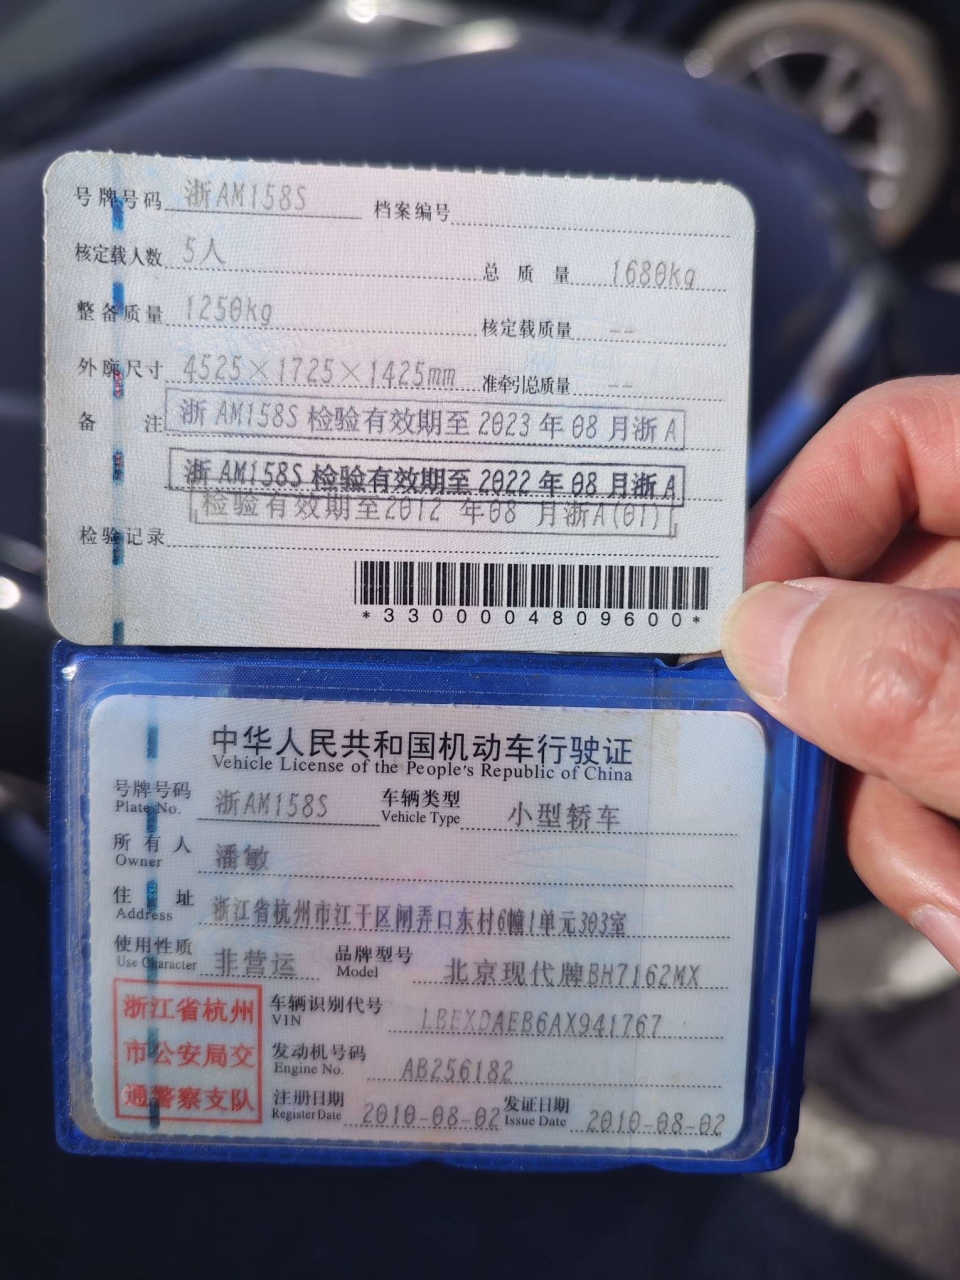 号牌号码 浙AM158S 档案编号
核定载人数 5人 总质量 1680kg
整备质量 1250kg 核定载质量 --
外廓尺寸 4525×1725×1425mm 准牵引总质量 --
备注 浙AM158S 检验有效期至 2023 年 08 月浙A
浙AM158S 检验有效期至 2022 年 08 月浙A
检验有效期至2012 年08 月浙A(01)
检验记录
*3300004809600*
中华人民共和国机动车行驶证
Vehicle License of the People's Republic of China
号牌号码 浙AM158S 车辆类型 小型轿车
Plate No. Vehicle Type
所有人 潘敏
Owner
住址 浙江省杭州市江干区闸弄口东村6幢1单元303室
Address
使用性质 非营运 品牌型号 北京现代牌BH7162MX
Use Character Model
浙江省杭州
市公安局交
通警察支队
车辆识别代号 LBEXDAEB6AX941767
VIN
发动机号码 AB256182
Engine No.
注册日期 2010-08-02 发证日期 2010-08-02
Register Date Issue Date